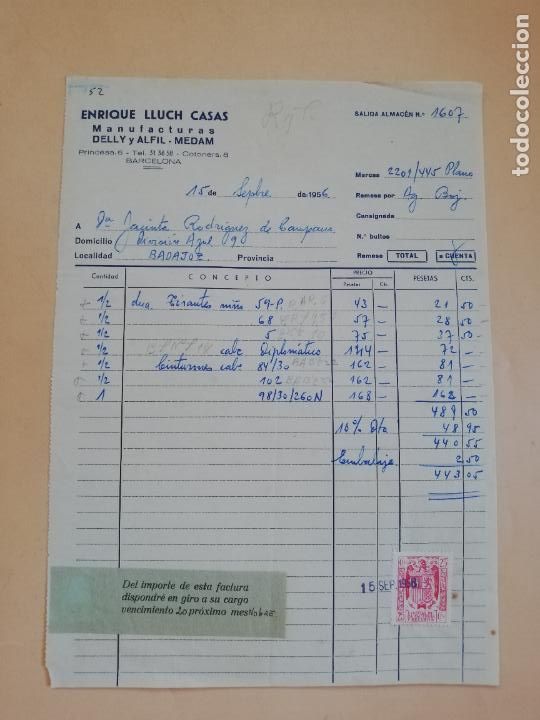 52
ENRIQUE LLUCH CASAS
Manufacturas
DELLY y ALFIL - MEDAM
Princesa, 6 - Tel. 31 38 58 - Cotoners, 8
BARCELONA
SALIDA ALMACÉN N.º 1607.
Marcas 2201/445 Plano
15 de Sepbre de 1956
Remesa por Ag. Baj.
Consignada
A Dña Jacinta Rodríguez de Campana
Domicilio Azul 9
N.º bultos
Localidad BADAJOZ Provincia
Remesa TOTAL a CUENTA
Cantidad CONCEPTO PRECIO PESETAS CTS.
Pesetas Cts.
1/2 dna. Tirantes niño 59-P 43 — 21 50
1/2 68 57 — 28 50
1/2 5 75 — 37 50
1/2 cabº Diplomático 144 — 72 —
1/2 Cinturones cabº 84/30 162 — 81 —
1/2 102 162 — 81 —
1 98/30/260N 168 — 168 —
489 50
10% Dto 48 95
440 55
Embalaje 2 50
443 05
Del importe de esta factura
dispondré en giro a su cargo
vencimiento 20 próximo mes
15 SEP. 1956
todocoleccion